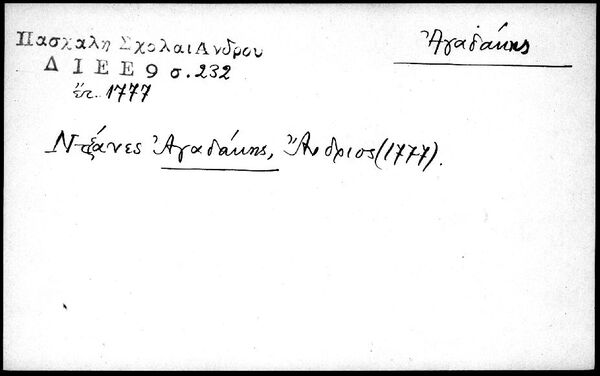 Πασχαλη Σχολαι Ανδρου
Ἀγαδάκης
Δ Ι Ε Ε 9 σ. 232
ἔτ. 1777
Ἀγαδάκης, Ἄνδριος (1777).